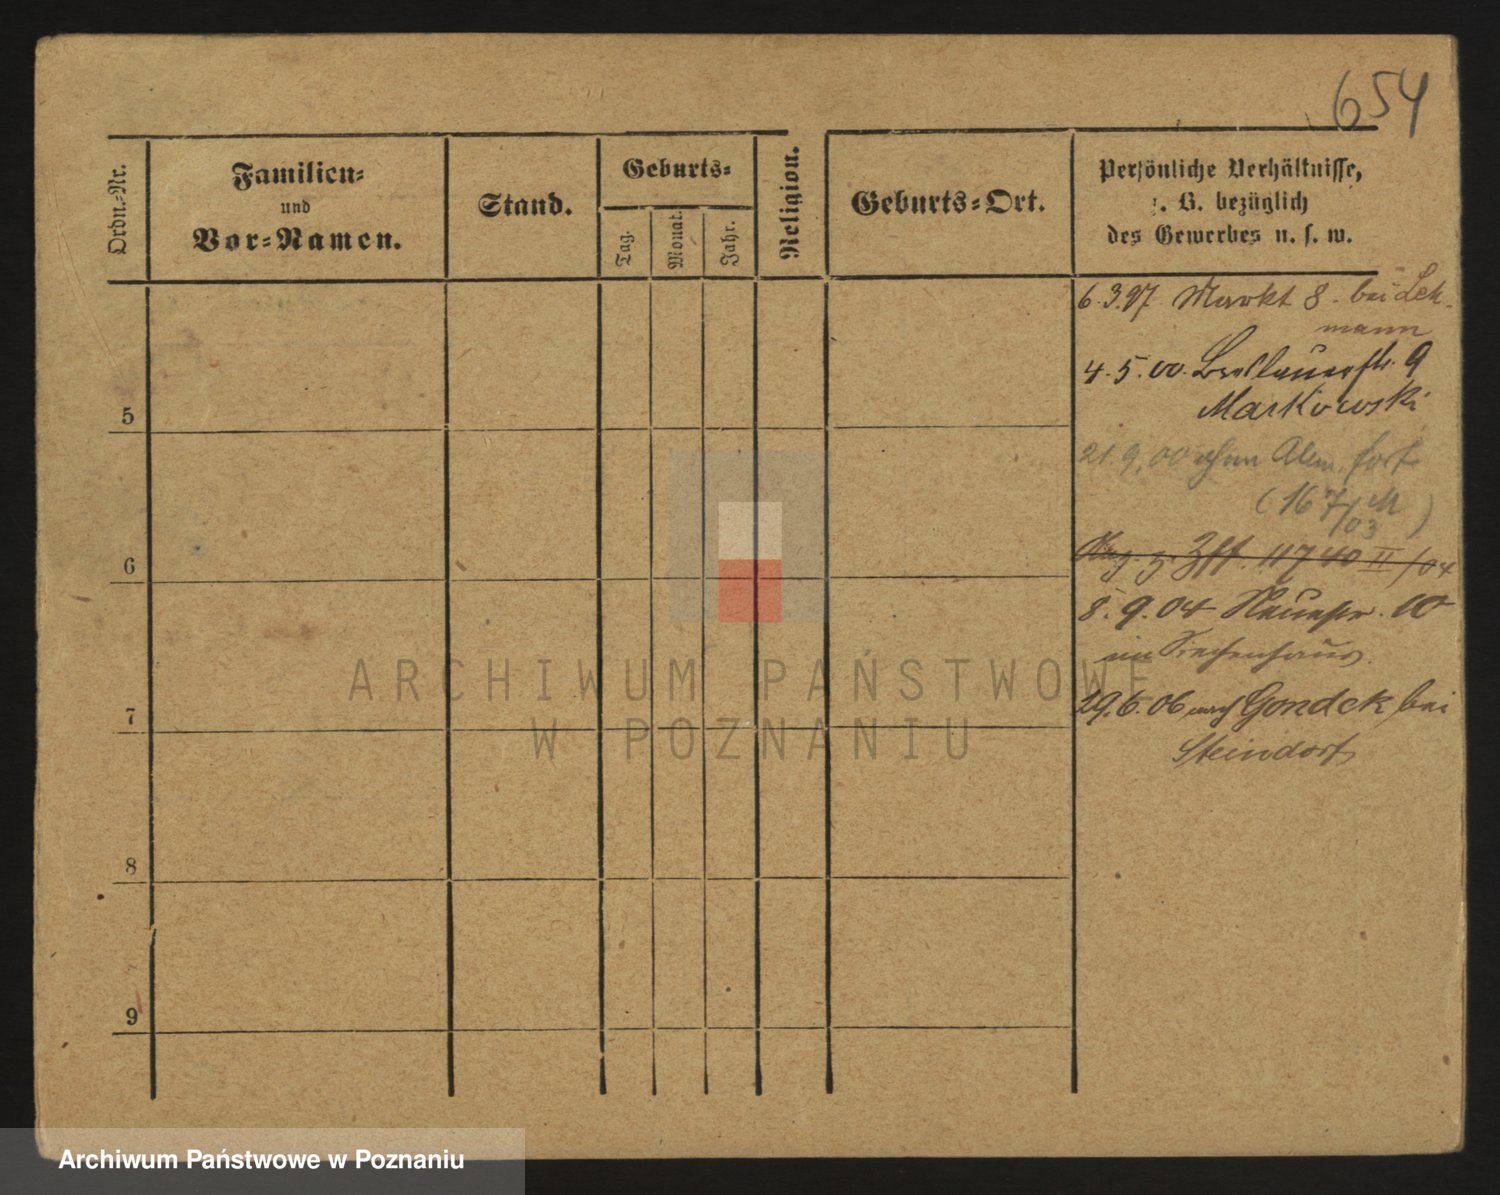 654
Ordn.-Nr.
Familien-
und
Vor-Namen.
Stand.
Geburts-
Tag.
Monat.
Jahr.
Religion.
Geburts-Ort.
Persönliche Verhältnisse,
z. B. bezüglich
des Gewerbes u. s. w.
6.3.97 Markt 8. bei Leh-
mann
4.5.00. Breslauerstr. 9
Markowski
21.9.00 ohne Abm. fort
(167/03 M)
z. Zff. 11740 II/04
8.9.04 Neuestr. 10
im Siechenhaus.
29.6.06 nach Gondek bei
Steindorf
5
6
7
8
9
ARCHIWUM PAŃSTWOWE
W POZNANIU
Archiwum Państwowe w Poznaniu